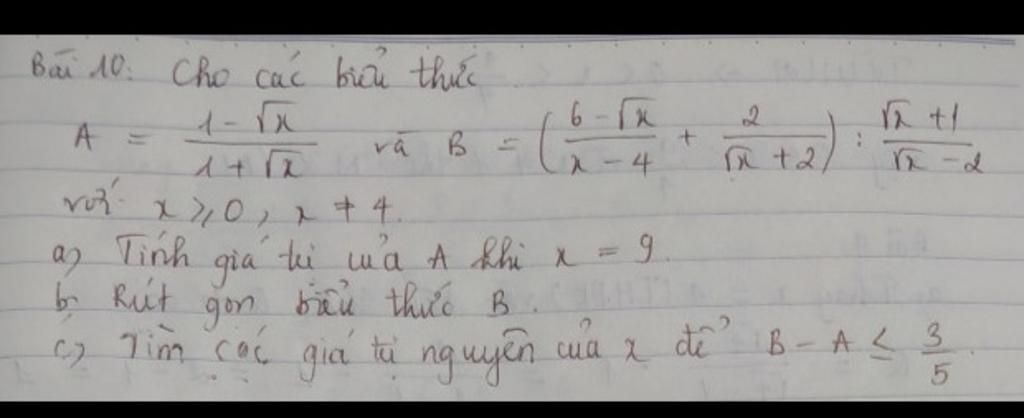 Bài 10: Cho các biểu thức
A = \frac{1 - \sqrt{x}}{1 + \sqrt{x}} và B = \left( \frac{6 - \sqrt{x}}{x - 4} + \frac{2}{\sqrt{x} + 2} \right) : \frac{\sqrt{x} + 1}{\sqrt{x} - 2}
với x ⩾ 0, x ≠ 4.
a) Tính giá trị của A khi x = 9.
b) Rút gọn biểu thức B.
c) Tìm các giá trị nguyên của x để B - A ≤ \frac{3}{5}.